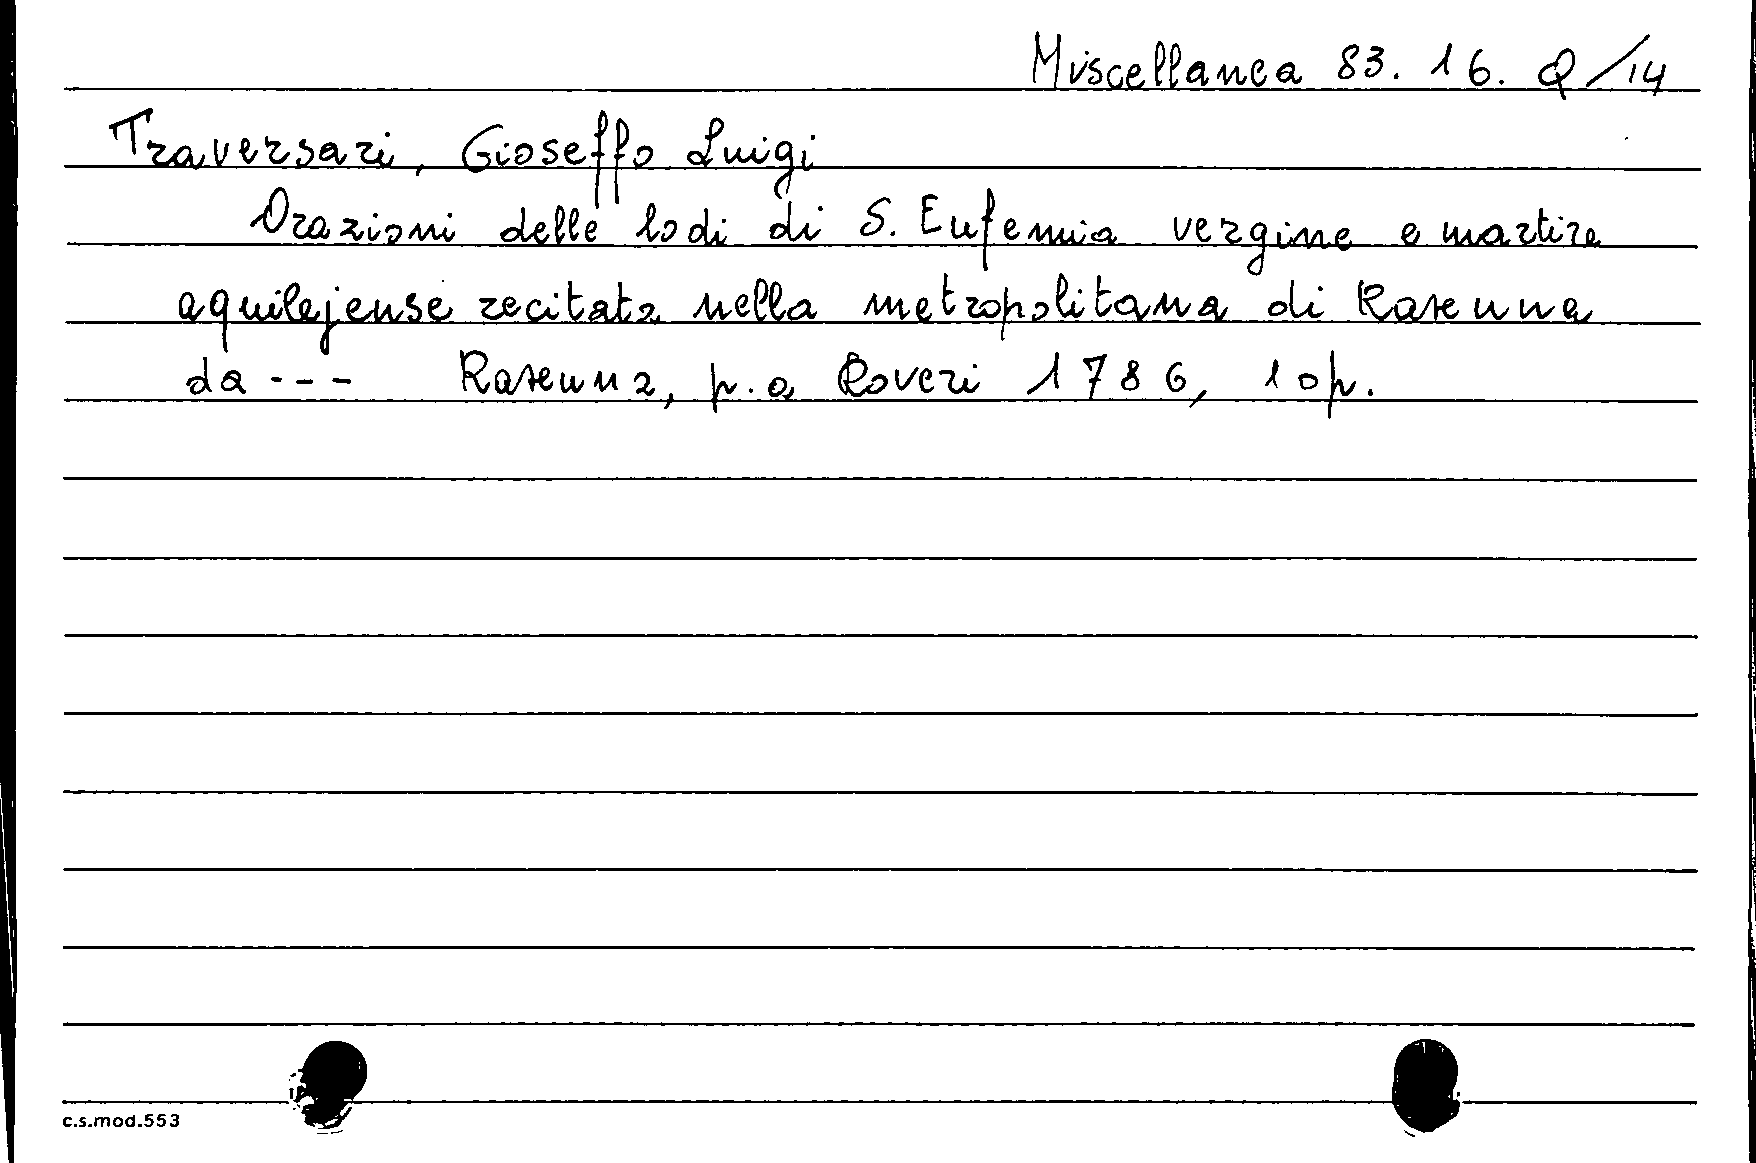 Miscellanea 83. 16. Q/14
Traversari, Gioseffo Luigi
Orazioni delle lodi di S. Eufemia vergine e martire
aquilejense recitata nella metropolitana di Ravenna
da --- Ravenna, p. a Roveri 1786, 10p.
c.s.mod.553